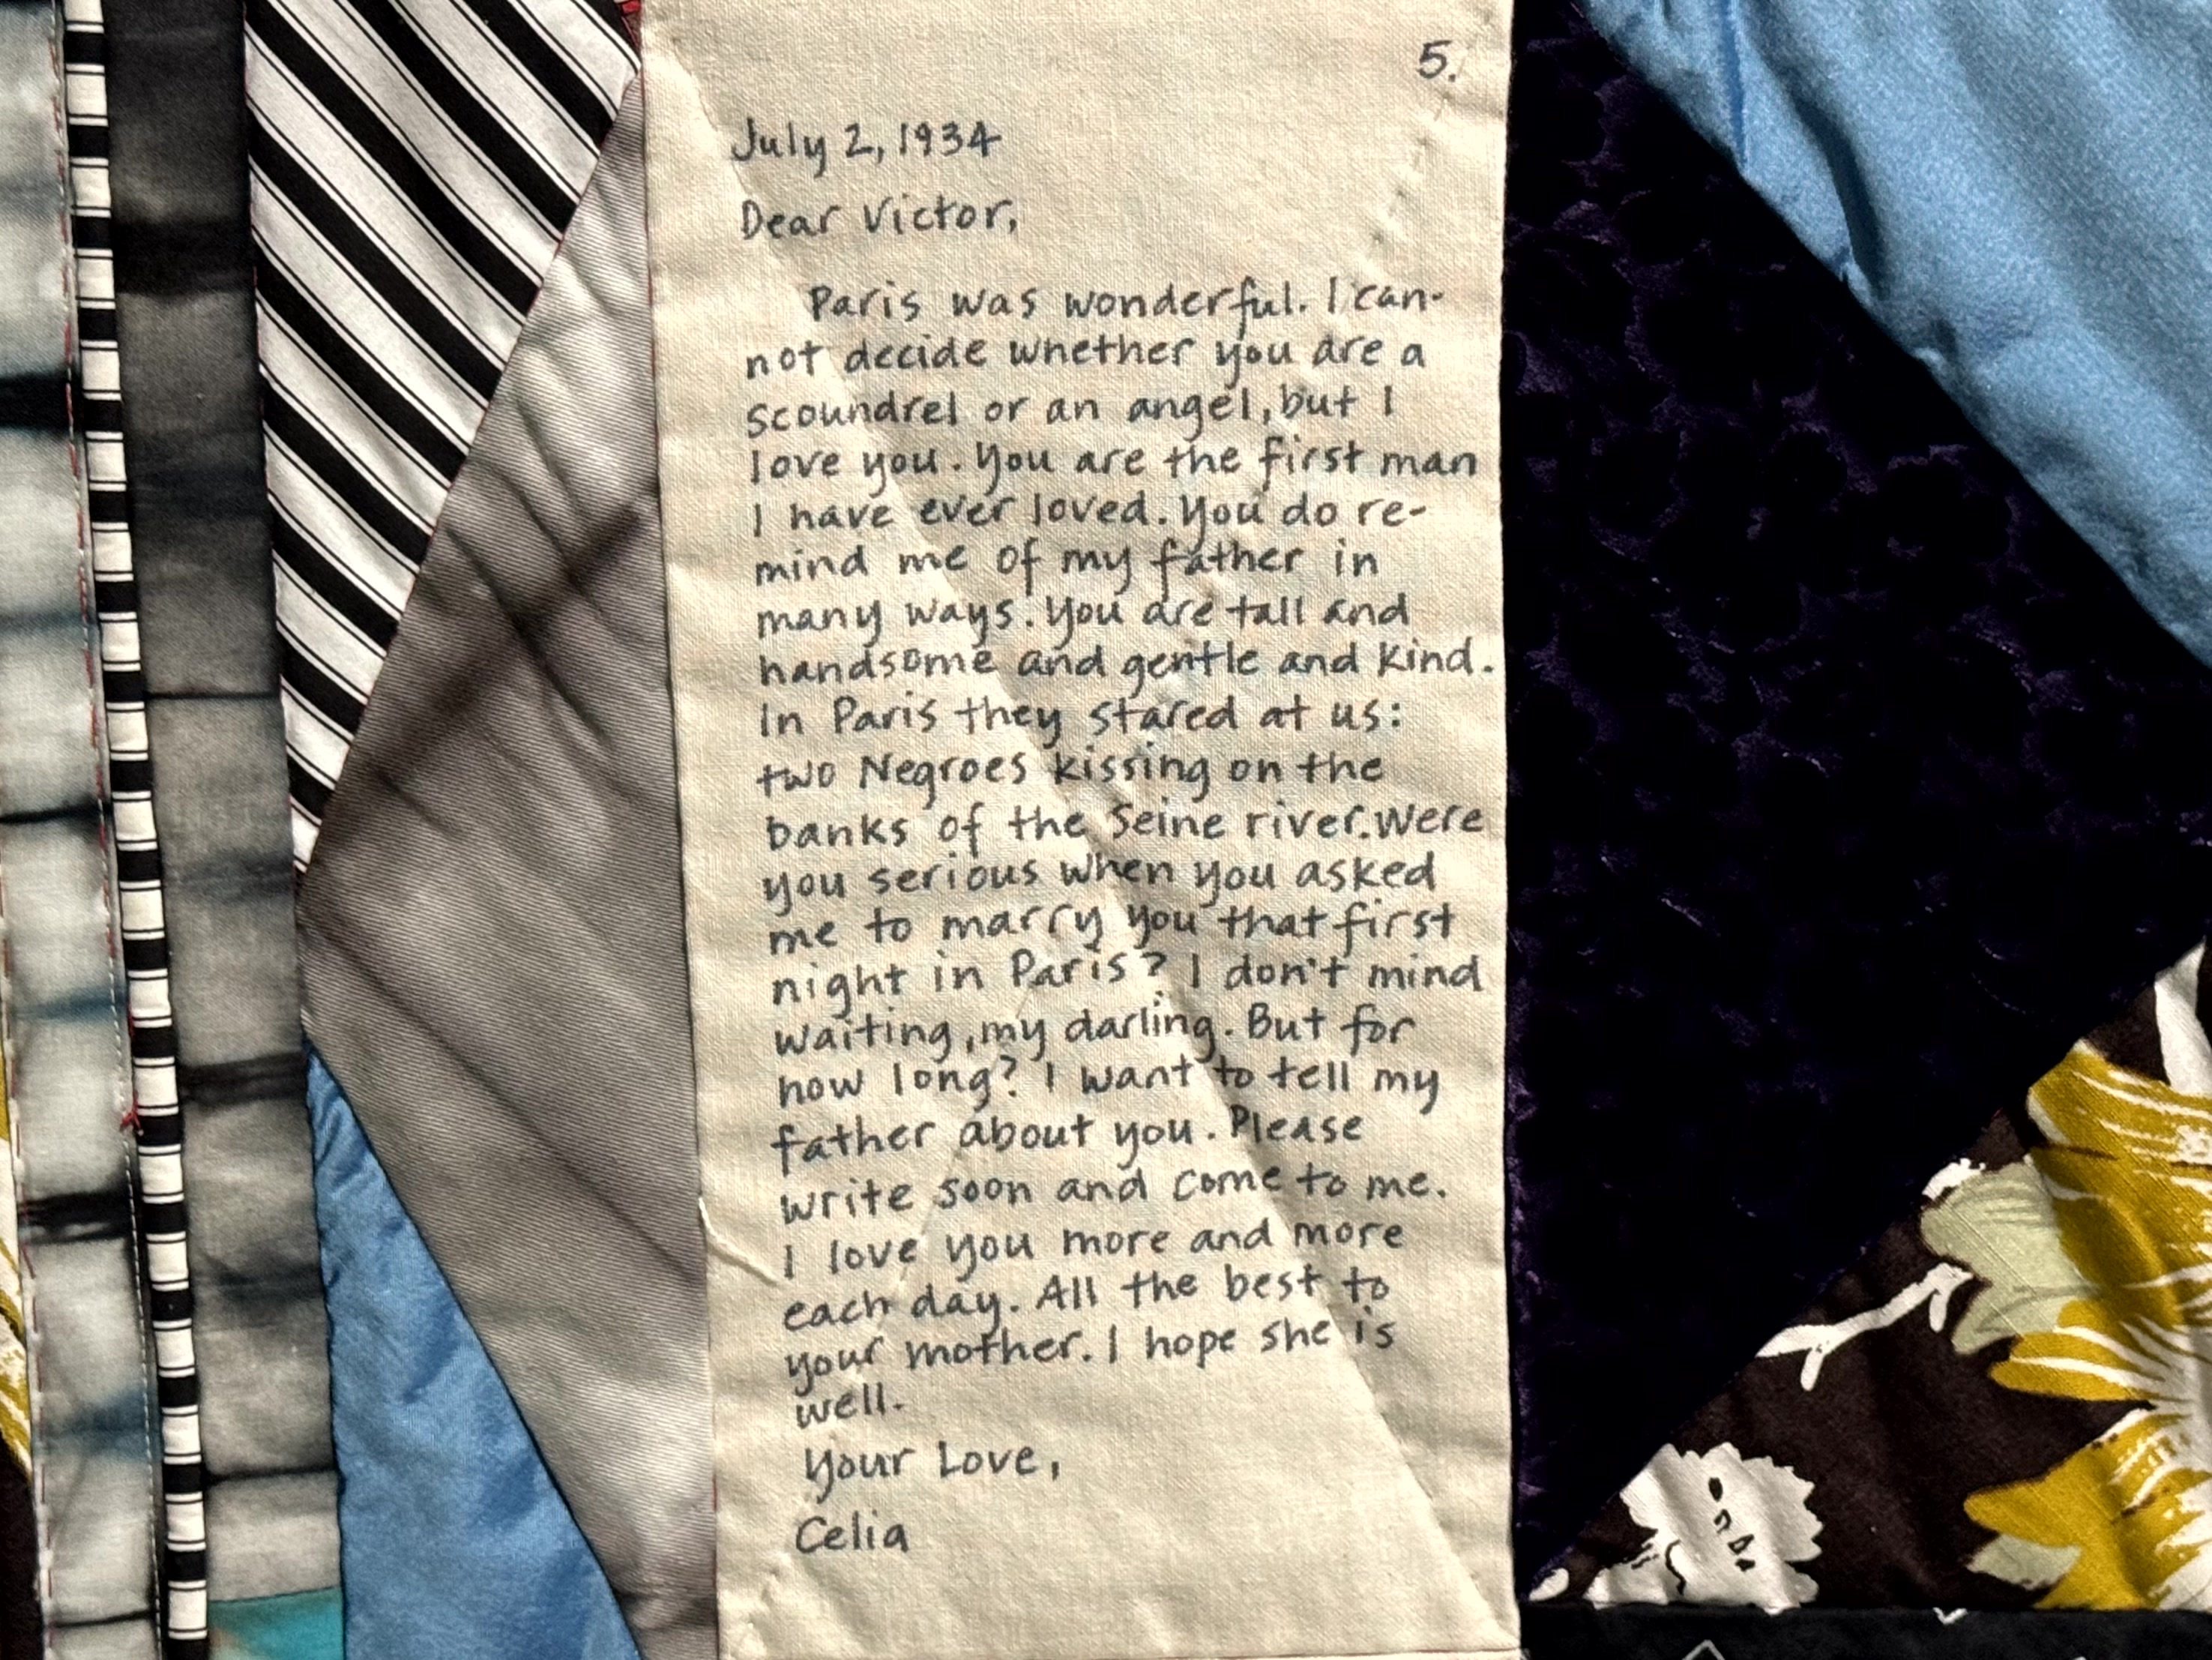 5.
July 2, 1934
Dear Victor,
Paris was wonderful. I can-
not decide whether you are a
scoundrel or an angel, but I
love you. You are the first man
I have ever loved. You do re-
mind me of my father in
many ways. You are tall and
handsome and gentle and kind.
In Paris they stared at us:
two Negroes kissing on the
banks of the Seine river. Were
you serious when you asked
me to marry you that first
night in Paris? I don't mind
waiting, my darling. But for
how long? I want to tell my
father about you. Please
write soon and come to me.
I love you more and more
each day. All the best to
your mother. I hope she is
well.
Your Love,
Celia